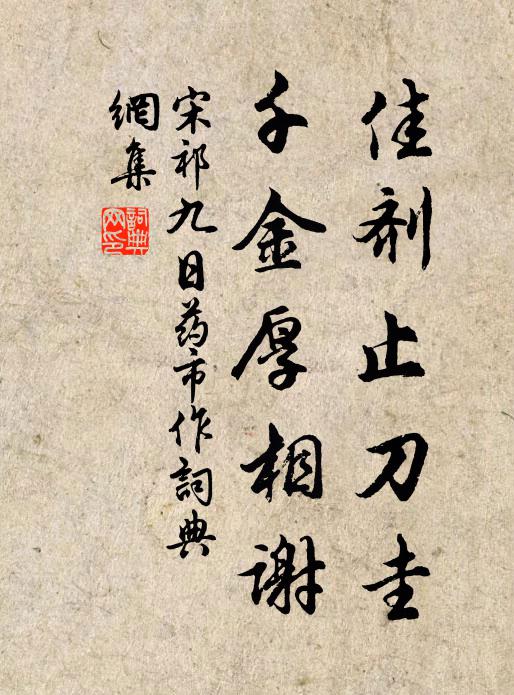 佳剂止刀圭
千金厚相谢
宋祁九日药市作詞典
網集
詞典
网印